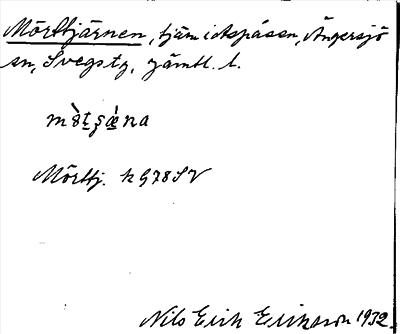 Mörttjärnen, tjärn i Aspåssn, Ängersjö
sn, Svegs tg, Jämtl. l.
mö̀tʂæ̀na
Mörttj. k G78SV
Nils Erik Eriksson 1932.